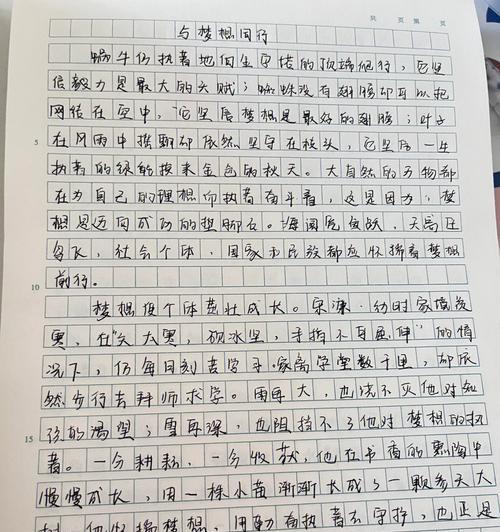 共 页 第 页
与梦想同行
蜗牛仍执着地向金字塔的顶端爬行，它坚
信毅力是最大的天赋；蜘蛛没有翅膀却可以把
网结在空中，它坚信梦想是最好的翅膀；叶子
5 在风雨中摇曳却依然坚守在枝头，它坚信一生
执着的绿能换来金色的秋天。大自然的万物都
在为自己的理想而执着奋斗着，这是因为：梦
想是迈向成功的垫脚石。海阔凭鱼跃，天高任
鸟飞，社会个体，国家和民族都应怀揣着梦想
10 前行。
梦想使个体茁壮成长。宋濂幼时家境贫
寒，在“天大寒，砚冰坚，手指不可屈伸”的情
况下，仍每日刻苦学习，家离学堂数千里，却依
然步行去拜师求学。雨再大，也浇不灭他对知
15 识的渴望；雪再深，也阻挡不了他对梦想的执
着。一分耕耘，一分收获，他在书香的熏陶中
慢慢成长，由一株小苗渐渐长成了一颗参天大
树。他怀揣梦想，用勤奋执着去守护，也正是